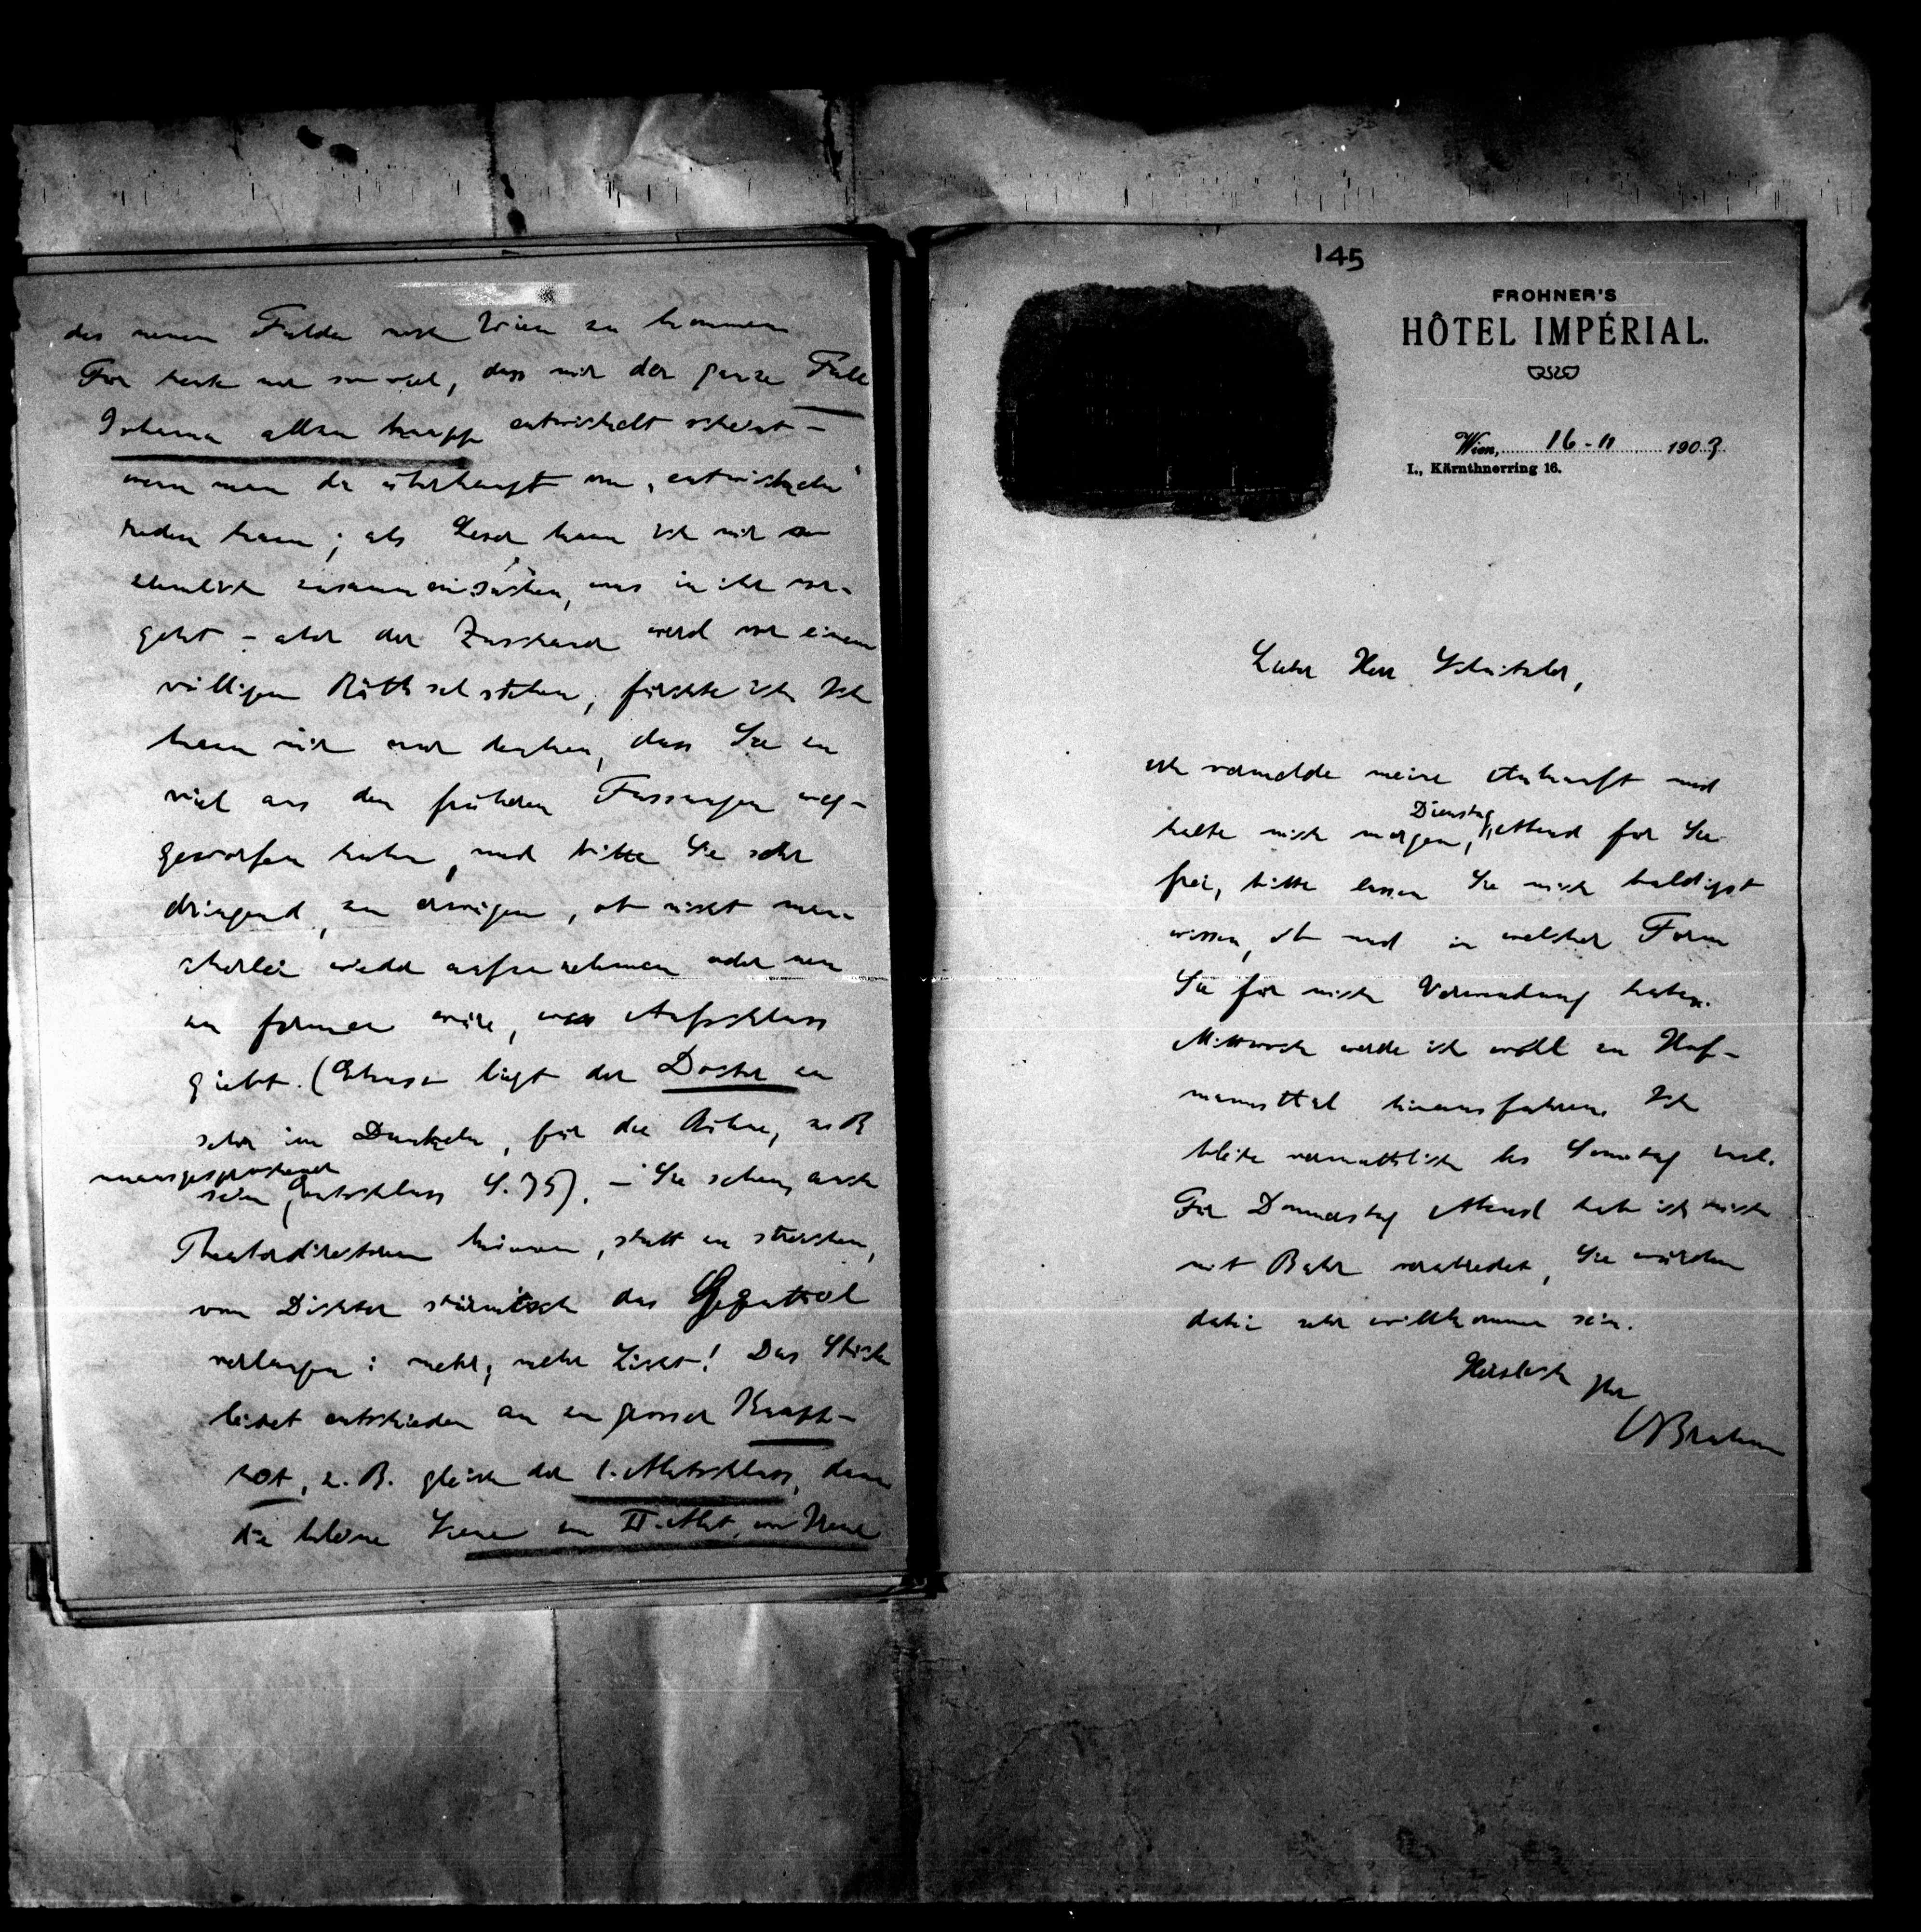 des neuen Fulda nach Wien zu kommen
Für heute nur soviel, dass mir der ganze Fall
Johanna allzu knapp entwickelt scheint –
wenn man da überhaupt von „entwickeln“
reden kann; als Leser kann ich mir so
ziemlich zusammendichten, was in ihr vor-
geht – aber der Zuschauer wird vor einem
völligen Räthsel stehen, fürchte ich. Ich
kann mir auch denken, dass Sie zu
viel aus den früheren Fassungen weg-
geworfen haben, und bitte Sie sehr
dringend, zu erwägen, ob nicht man-
cherlei wieder aufzunehmen oder neu
zu formen wäre, was Aufschluss
giebt. (Ebenso liegt der Doctor zu
sehr im Dunkeln, für die Bühne, z. B.
unausgesprochener
sein Entschluss S. 75). – Sie sehen, auch
Theaterdirectoren können, statt zu streichen,
vom Dichter stürmisch das Gegenteil
verlangen: mehr, mehr Licht! Das Stück
leidet entschieden an zu grosser Knapp-
heit, z. B. gleich der I. Aktschluss, dann
die kleine Scene im II. Akt, vor
145
FROHNER'S
HÔTEL IMPÉRIAL.
Wien, 16-11 1903
I., Kärnthnerring 16.
Lieber Herr Schnitzler,
ich vermelde meine Ankunft und
Dienstag
halte mich morgen, Abend für Sie
frei, bitte lassen Sie mich baldigst
wissen, ob und in welcher Form
Sie für mich Verwendung haben.
Mittwoch werde ich wohl zu Hof-
mannsthal hinausfahren. Ich
bleibe vermuthlich bis Sonntag incl.
Für Donnerstag Abend habe ich mich
mit Bahr verabredet, Sie würden
dabei sehr willkommen sein.
Herzlich Ihr
OBrahm